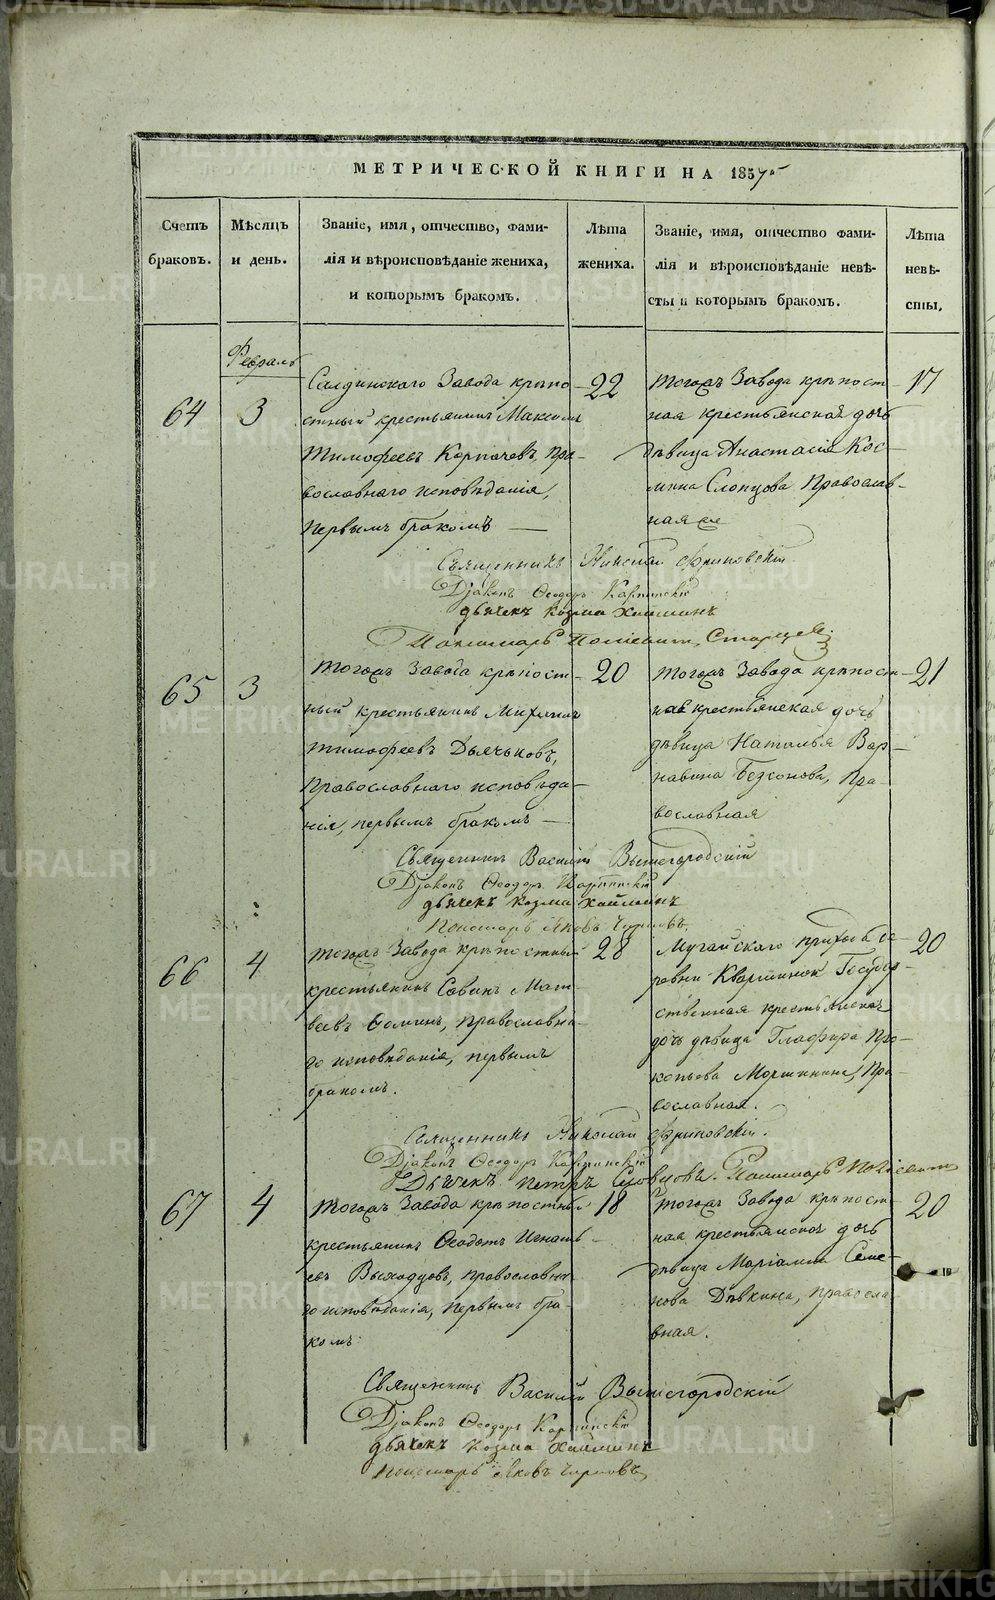 МЕТРИЧЕСКОЙ КНИГИ НА 185
Счетъ браковъ.
Мѣсяцъ и день.
Званіе, имя, отчество, фами-
лія и вѣроисповѣданіе жениха,
и которымъ бракомъ.
Лѣта жениха.
Званіе, имя, отчество фами-
лія и вѣроисповѣданіе невѣ-
сты и которымъ бракомъ.
Лѣта невѣ-
сты.
Февраль
64
3
Салдинскаго Завода крѣпо-
стный крестьянинъ Максимъ
Тимофеевъ Корпачевъ, пра-
вославнаго исповѣданія,
первымъ бракомъ —
22
Тогожъ Завода крѣпост-
ная крестьянская дочь
дѣвица Анастасія Кос-
мина Слопцова Православ-
ная
17
Священникъ Николай Фриновскій
Діаконъ Ѳеодоръ Карпинскій
дьячекъ Козма Хаймин
Пономарь Полиевктъ Старцев
65
3
Тогожъ Завода крѣпост-
ный крестьянинъ Михаилъ
Тимофеевъ Дьячьковъ,
Православнаго исповѣда-
нія, первымъ бракомъ —
20
Тогожъ Завода крѣпост-
ная крестьянская дочь
дѣвица Наталья Вар-
навина Безсонова, Пра-
вославная
21
Священникъ Василій Вышегородскій
Діаконъ Ѳеодоръ Карпинскій
дьячекъ Козма Хаймин
Пономарь Яковъ
66
4
Тогожъ Завода крѣпостный
крестьянинъ Савинъ Мат-
веевъ Ѳоминъ, православна-
го исповѣданія, первымъ
бракомъ.
28
Мугайскаго прихода де-
ревни Государ-
ственная крестьянская
дочь дѣвица Глафира Про-
копьева Моршинина, Пра-
вославная.
20
Священникъ Николай Фриновскій.
Діаконъ Ѳеодоръ Карпинскій
Дьячекъ Петръ Словцовъ. Пономарь Полиевктъ
67
4
Тогожъ Завода крѣпостный
крестьянинъ Ѳеодотъ Игнать-
евъ Выходцовъ, православна-
го исповѣданія, первымъ бра-
комъ
18
Тогожъ Завода крѣпост-
ная крестьянская дочь
дѣвица Маріамія Семе-
нова Дѣвкина, православ-
вная.
20
Священникъ Василій Вышегородскій
Діаконъ Ѳеодоръ Карпинскій
дьячекъ Козма Хаймин
Пономарь Яковъ
METRIKI.GASO-URAL.RU